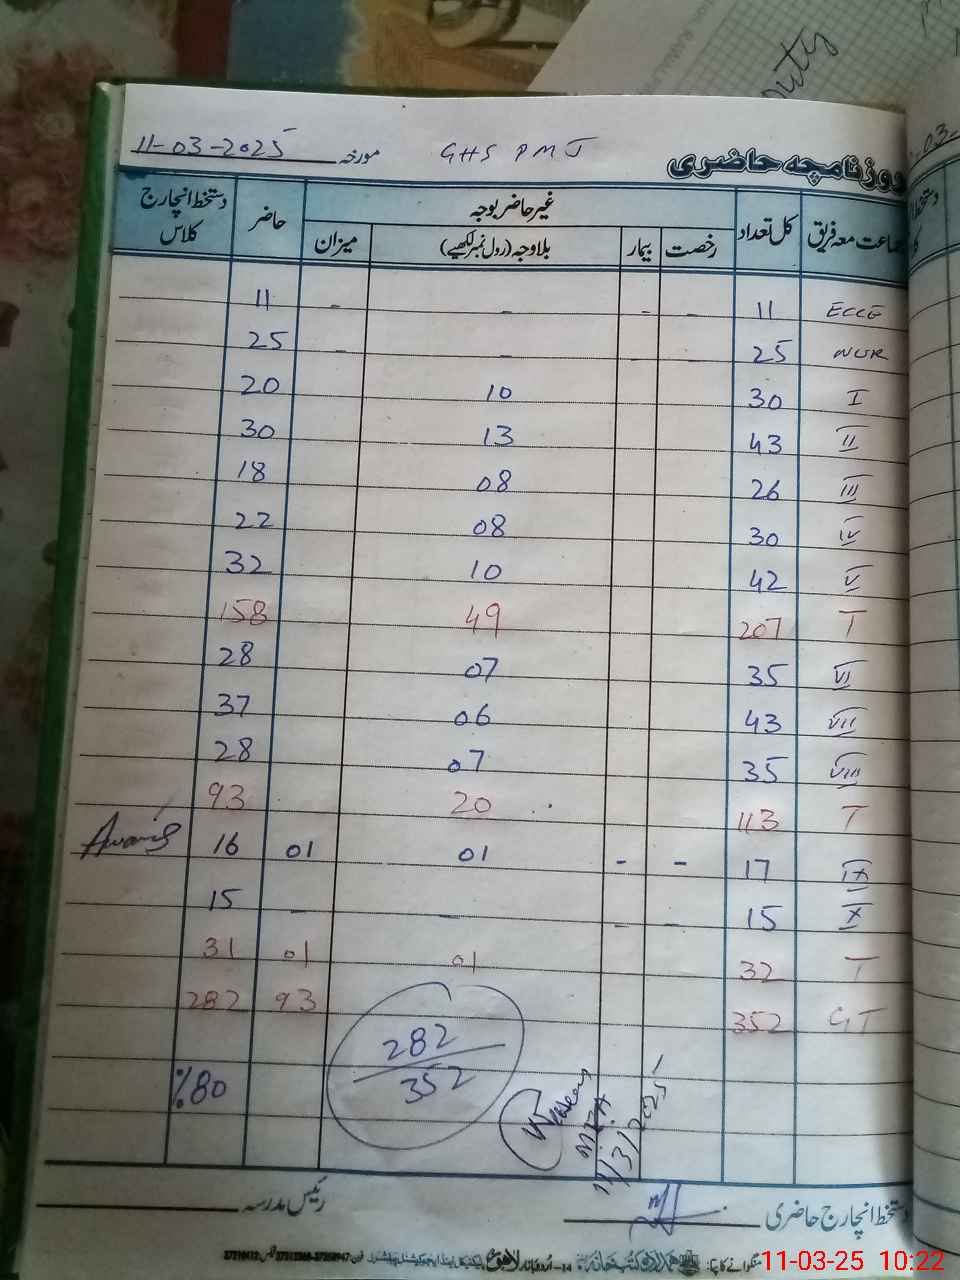 Duty
11-03-2025 مورخہ GHS PMJ روزنامچہ حاضری
جماعت معہ فریق کل تعداد غیر حاضر بوجہ حاضر دستخط انچارج کلاس
رخصت بیمار بلاوجہ (رول نمبر لکھیے) میزان
ECCE 11 - - - - 11
NUR 25 - - - - 25
I 30 10 20
II 43 13 30
III 26 08 18
IV 30 08 22
V 42 10 32
T 207 49 158
VI 35 07 28
VII 43 06 37
VIII 35 07 28
T 113 20 93
IX 17 - - 01 01 16
X 15 - - - - 15
T 32 01 01 31
GT 352 93 282
282
352
%80
MEA
11/3/2025
دستخط انچارج حاضری رئیس مدرسہ
منگوانے کا پتہ:
11-03-25 10:22